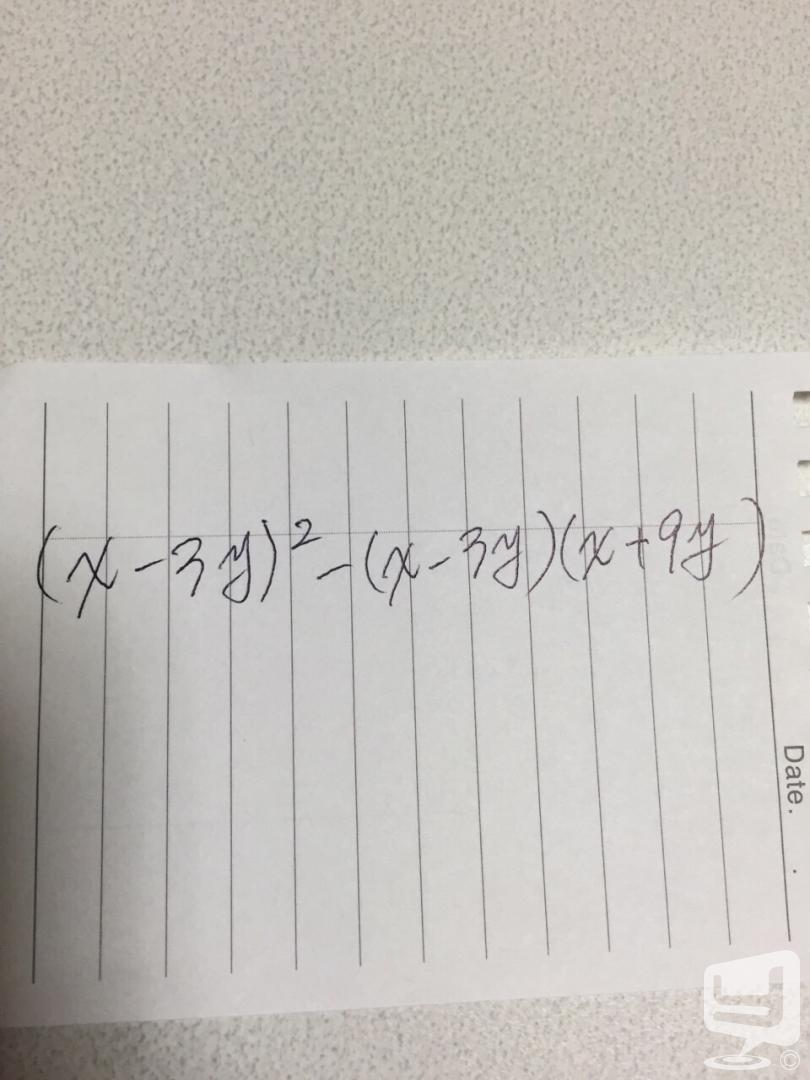 (x-3y)²-(x-3y)(x+9y)
Date.